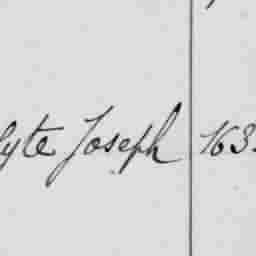 lyte Joseph 163.